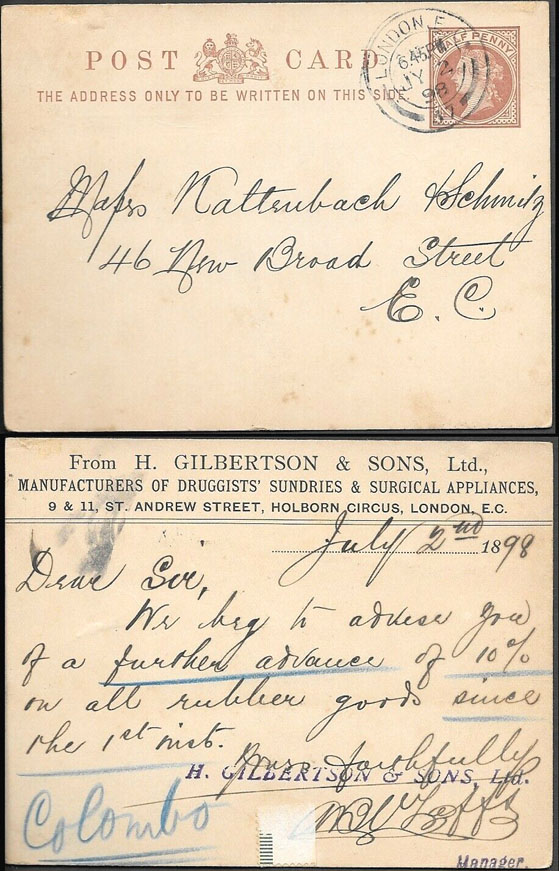 POST CARD
THE ADDRESS ONLY TO BE WRITTEN ON THIS SIDE
HALF PENNY
LONDON E
6.45PM
JY 2
98
Messrs Kattenbach & Schmitz
46 New Broad Street
E. C.
From H. GILBERTSON & SONS, Ltd.,
MANUFACTURERS OF DRUGGISTS' SUNDRIES & SURGICAL APPLIANCES,
9 & 11, ST. ANDREW STREET, HOLBORN CIRCUS, LONDON, E.C.
July 2nd 1898
Dear Sir,
We beg to advise you
of a further advance of 10%
on all rubber goods since
the 1st inst.
Yours faithfully
H. GILBERTSON & SONS, Ltd.
Colombo
Manager.